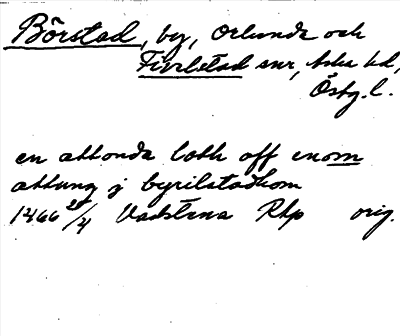 Börstad, by, Orlunda och
Fivelstad snr, Aska hd,
Östg. l.
en attonda loth off enom
attung j byrilstadhom
1466 28/4 Vadstena Rkp orig.